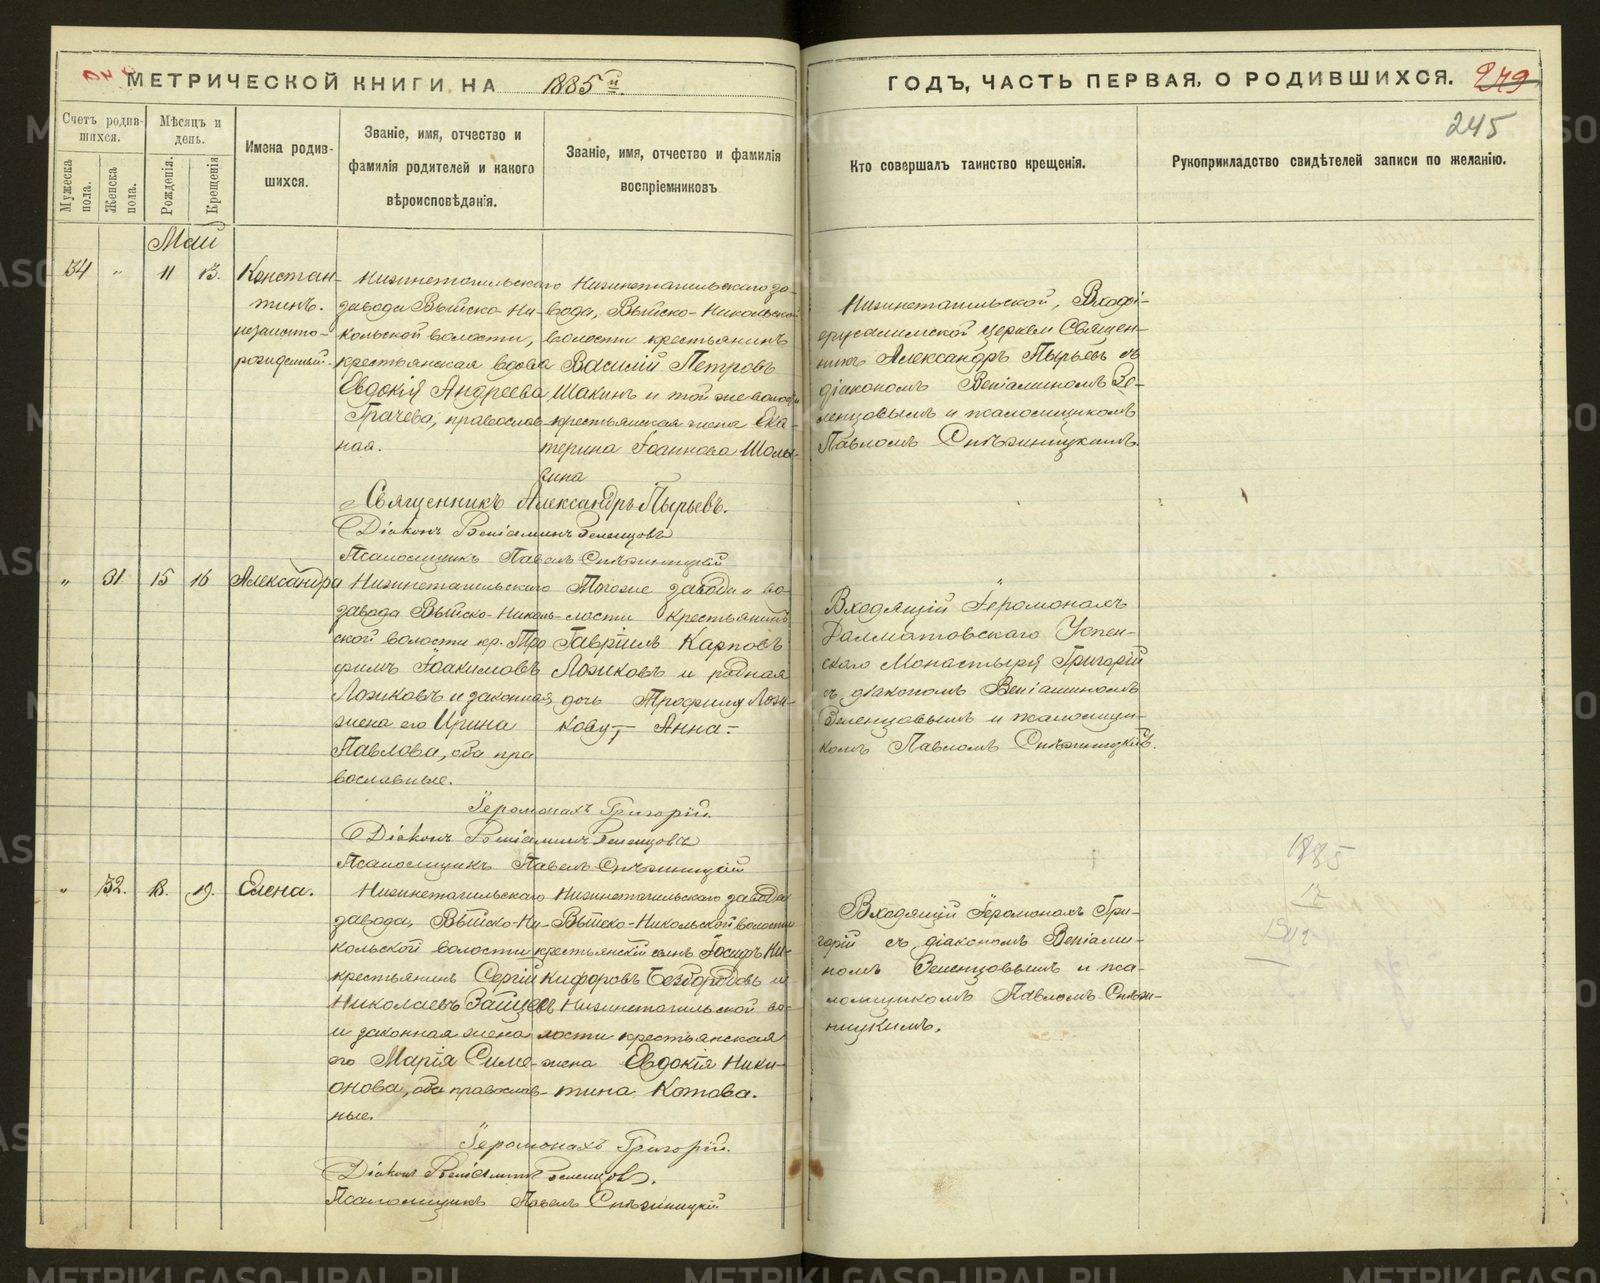 МЕТРИЧЕСКОЙ КНИГИ НА 1885 й.
ГОДЪ, ЧАСТЬ ПЕРВАЯ, О РОДИВШИХСЯ. 279
245
Счетъ родив-
шихся.
Мужеска пола.
Женска пола.
Мѣсяцъ и
день.
Рожденія.
Крещенія
Имена родив-
шихся.
Званіе, имя, отчество и
фамилія родителей и какого
вѣроисповѣданія.
Званіе, имя, отчество и фамилія
воспріемниковъ
Кто совершалъ таинство крещенія.
Рукоприкладство свидѣтелей записи по желанію.
Май
34 " 11 13.
Констан-
тинъ.
незаконно-
рожденный.
Нижнетагильскаго
завода Выйско-Ни-
кольской волости,
крестьянская вдова
Евдокія Андреева
Грачева, православ-
ная.
Нижнетагильскаго за-
вода, Выйско-Никольской
волости крестьянинъ
Василій Петровъ
Шакинъ и той же волости
крестьянская жена Ека-
терина Іоаннова Шолы-
гина
Нижнетагильской, Входо-
ерусалимской церкви Священ-
никъ Александръ Пырьевъ съ
діакономъ Веніаминомъ Зе-
ленцовымъ и псаломщикомъ
Павломъ Снѣжницкимъ.
Священникъ Александръ Пырьевъ.
Діаконъ Веніаминъ Зеленцовъ
Псаломщикъ Павелъ Снѣжницкій
" 31 15 16
Александра
Нижнетагильскаго
завода Выйско-Николь-
ской волости кр. Тро
фимъ Іоакимовъ
Ложковъ и законная
жена его Ирина
Павлова, оба пра
вославные.
Тогоже завода и во-
лости крестьянинъ
Гавріилъ Карповъ
Ложковъ и родная
дочь Трофиму Лож-
кову, – Анна –
Входящій Іеромонахъ
Далматовскаго Успен-
скаго Монастыря Григорій
съ діакономъ Веніаминомъ
Зеленцовымъ и псаломщи-
комъ Павломъ Снѣжницкимъ.
Іеромонахъ Григорій.
Діаконъ Веніаминъ Зеленцовъ
Псаломщикъ Павелъ Снѣжницкій
" 32. 18. 19.
Елена.
Нижнетагильскаго
завода, Выйско-Ни-
кольской волости
крестьянинъ Сергій
Николаевъ Зайцевъ
и законная жена
его Марія Симе-
онова, оба православ-
ные.
Нижнетагильскаго завода
Выйско-Никольской волости
крестьянскій сынъ Іосифъ Ни-
кифоровъ Безбородовъ и
Нижнетагильской во-
лости крестьянская
жена Евдокія Ники-
тина Котова.
Входящій Іеромонахъ Гри-
горій съ діакономъ Веніами-
номъ Зеленцовымъ и пса-
ломщикомъ Павломъ Снѣж-
ницкимъ.
Іеромонахъ Григорій.
Діаконъ Веніаминъ Зеленцовъ.
Псаломщикъ Павелъ Снѣжницкій
1885
17
METRIKI.GASO-URAL.RU